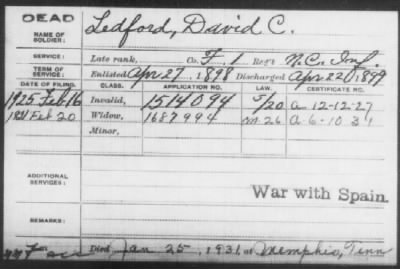 DEAD
NAME OF SOLDIER: Ledford, David C.
SERVICE: Late rank, Co. F, 1 Reg't N.C. Inf.
TERM OF SERVICE: Enlisted Apr 27, 1898 Discharged Apr 22, 1899
DATE OF FILING. CLASS. APPLICATION NO. LAW. CERTIFICATE NO.
1925 Feb 16 Invalid, 1514094 5/20 a 12-12-27
1931 Feb 20 Widow, 1687994 m 26 A-6-10-31
Minor,
ADDITIONAL SERVICES:
War with Spain.
REMARKS:
Died Jan 25, 1931, at Memphis, Tenn